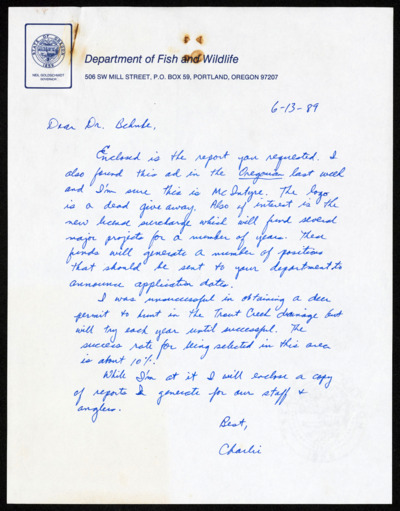 STATE OF OREGON
1859
NEIL GOLDSCHMIDT
GOVERNOR
Department of Fish and Wildlife
506 SW MILL STREET, P.O. BOX 59, PORTLAND, OREGON 97207
6-13-89
Dear Dr. Behnke,
Enclosed is the report you requested. I
also found this ad in the Oregonian last week
and I'm sure this is McIntyre. The logo
is a dead give away. Also of interest is the
new license surcharge which will fund several
major projects for a number of years. These
funds will generate a number of positions
that should be sent to your department to
announce application dates.
I was unsuccessful in obtaining a deer
permit to hunt in the Trout Creek drainage but
will try each year until successful. The
success rate for being selected in this area
is about 10%.
While I'm at it I will enclose a copy
of reports I generate for our staff &
anglers.
Best,
Charlie